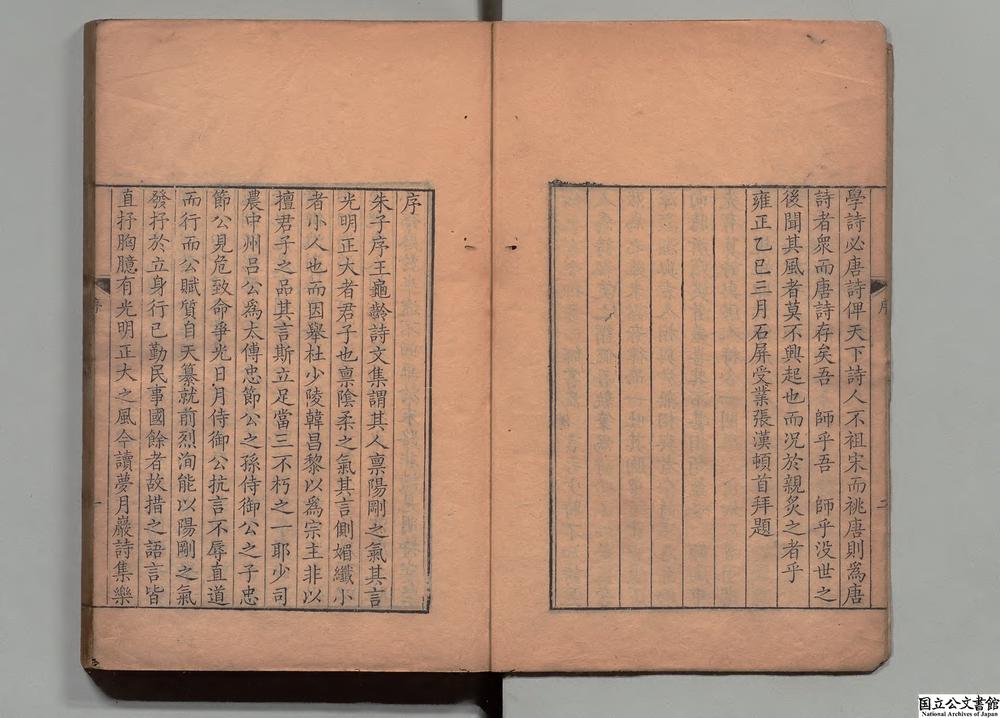 學詩必唐詩俾天下詩人不祖宋而祧唐則爲唐
詩者衆而唐詩存矣吾　師乎吾　師乎没世之
後聞其風者莫不興起也而况於親炙之者乎
雍正乙巳三月石屏受業張漢頓首拜題
序
二
序
朱子序王龜齡詩文集謂其人禀陽剛之氣其言
光明正大者君子也禀陰柔之氣其言側媚纖小
者小人也而因舉杜少陵韓昌黎以爲宗主非以
擅君子之品其言斯立足當三不朽之一耶少司
農中州呂公爲太傅忠節公之孫侍御公之子忠
節公見危致命爭光日月侍御公抗言不辱直道
而行而公賦質自天纂就前烈洵能以陽剛之氣
發抒於立身行已勤民事國餘者故措之語言皆
直抒胸臆有光明正大之風今讀夢月巖詩集樂
序
一
国立公文書館
National Archives of Japan